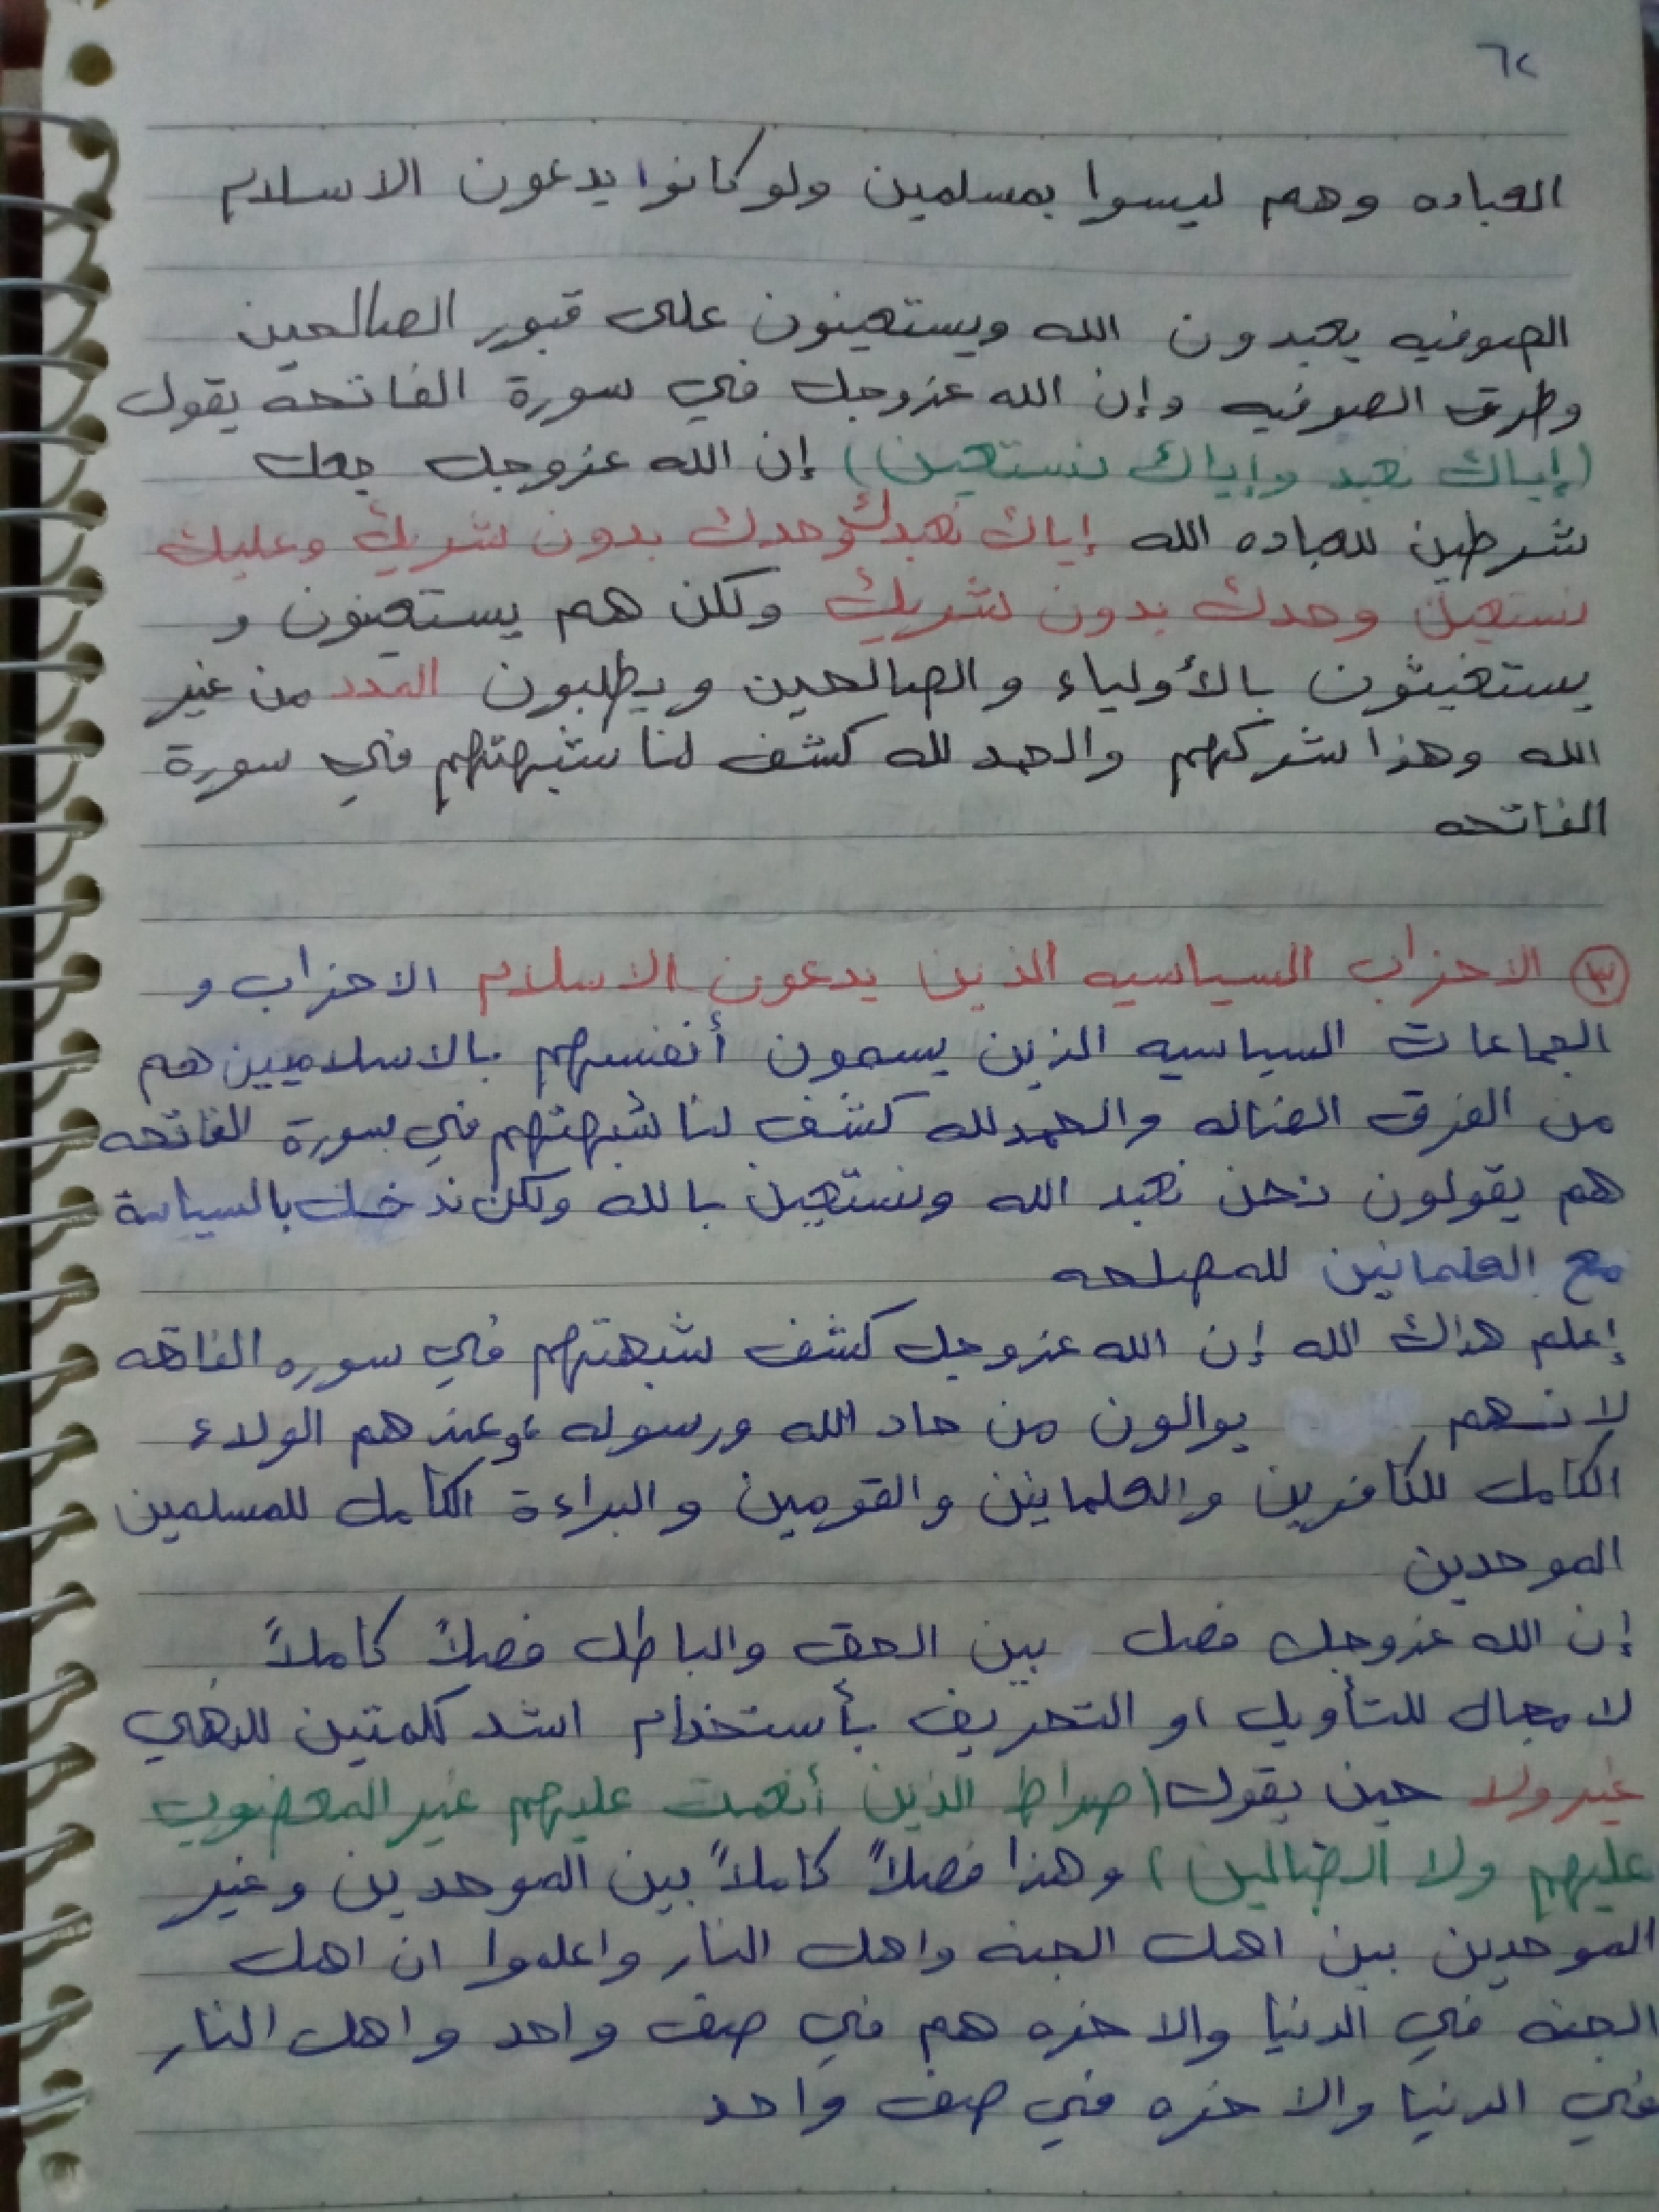 ٦٢
العباده وهم ليسوا بمسلمين ولو كانوا يدعون الاسلام
الصوفيه يعبدون الله ويستعينون على قبور الصالحين
وطرق الصوفيه وإن الله عزوجل في سورة الفاتحه يقول
(إياك نعبد وإياك نستعين) إن الله عزوجل جعل
شرطين للعباده الله إياك نعبدك وحدك بدون شريك وعليك
نستعين وحدك بدون شريك ولكن هم يستعينون و
يستغيثون بالأولياء والصالحين ويطلبون المدد من غير
الله وهذا شركهم والحمد لله كشف لنا شبهتهم في سورة
الفاتحه
٣ الاحزاب السياسيه الذين يدعون الاسلام الاحزاب و
الجماعات السياسيه الذين يسمون أنفسهم بالاسلاميين هم
من الفرق الضاله والحمدلله كشف لنا شبهتهم في سورة الفاتحه
هم يقولون نحن نعبد الله ونستعين بالله ولكن ندخل بالسياسة
مع العلمانين للمصلحه
إعلم هداك الله إن الله عزوجل كشف شبهتهم في سوره الفاتحه
لانهم يوالون من حاد الله ورسوله، وعندهم الولاء
الكامل للكافرين والعلمانين والقومين والبراءة الكامل للمسلمين
الموحدين
إن الله عزوجل فصل بين الحق والباطل فصلاً كاملاً
لا مجال للتأويل او التحريف بأستخدام اشد كلمتين للنهي
غير ولا حين يقول (صراط الذين أنعمت عليهم غير المغضوب
عليهم ولا الضالين) وهذا فصلاً كاملاً بين الموحدين وغير
الموحدين بين اهل الجنه واهل النار واعلموا ان اهل
الجنه في الدنيا والاخره هم في صف واحد واهل النار
في الدنيا والاخره في صف واحد